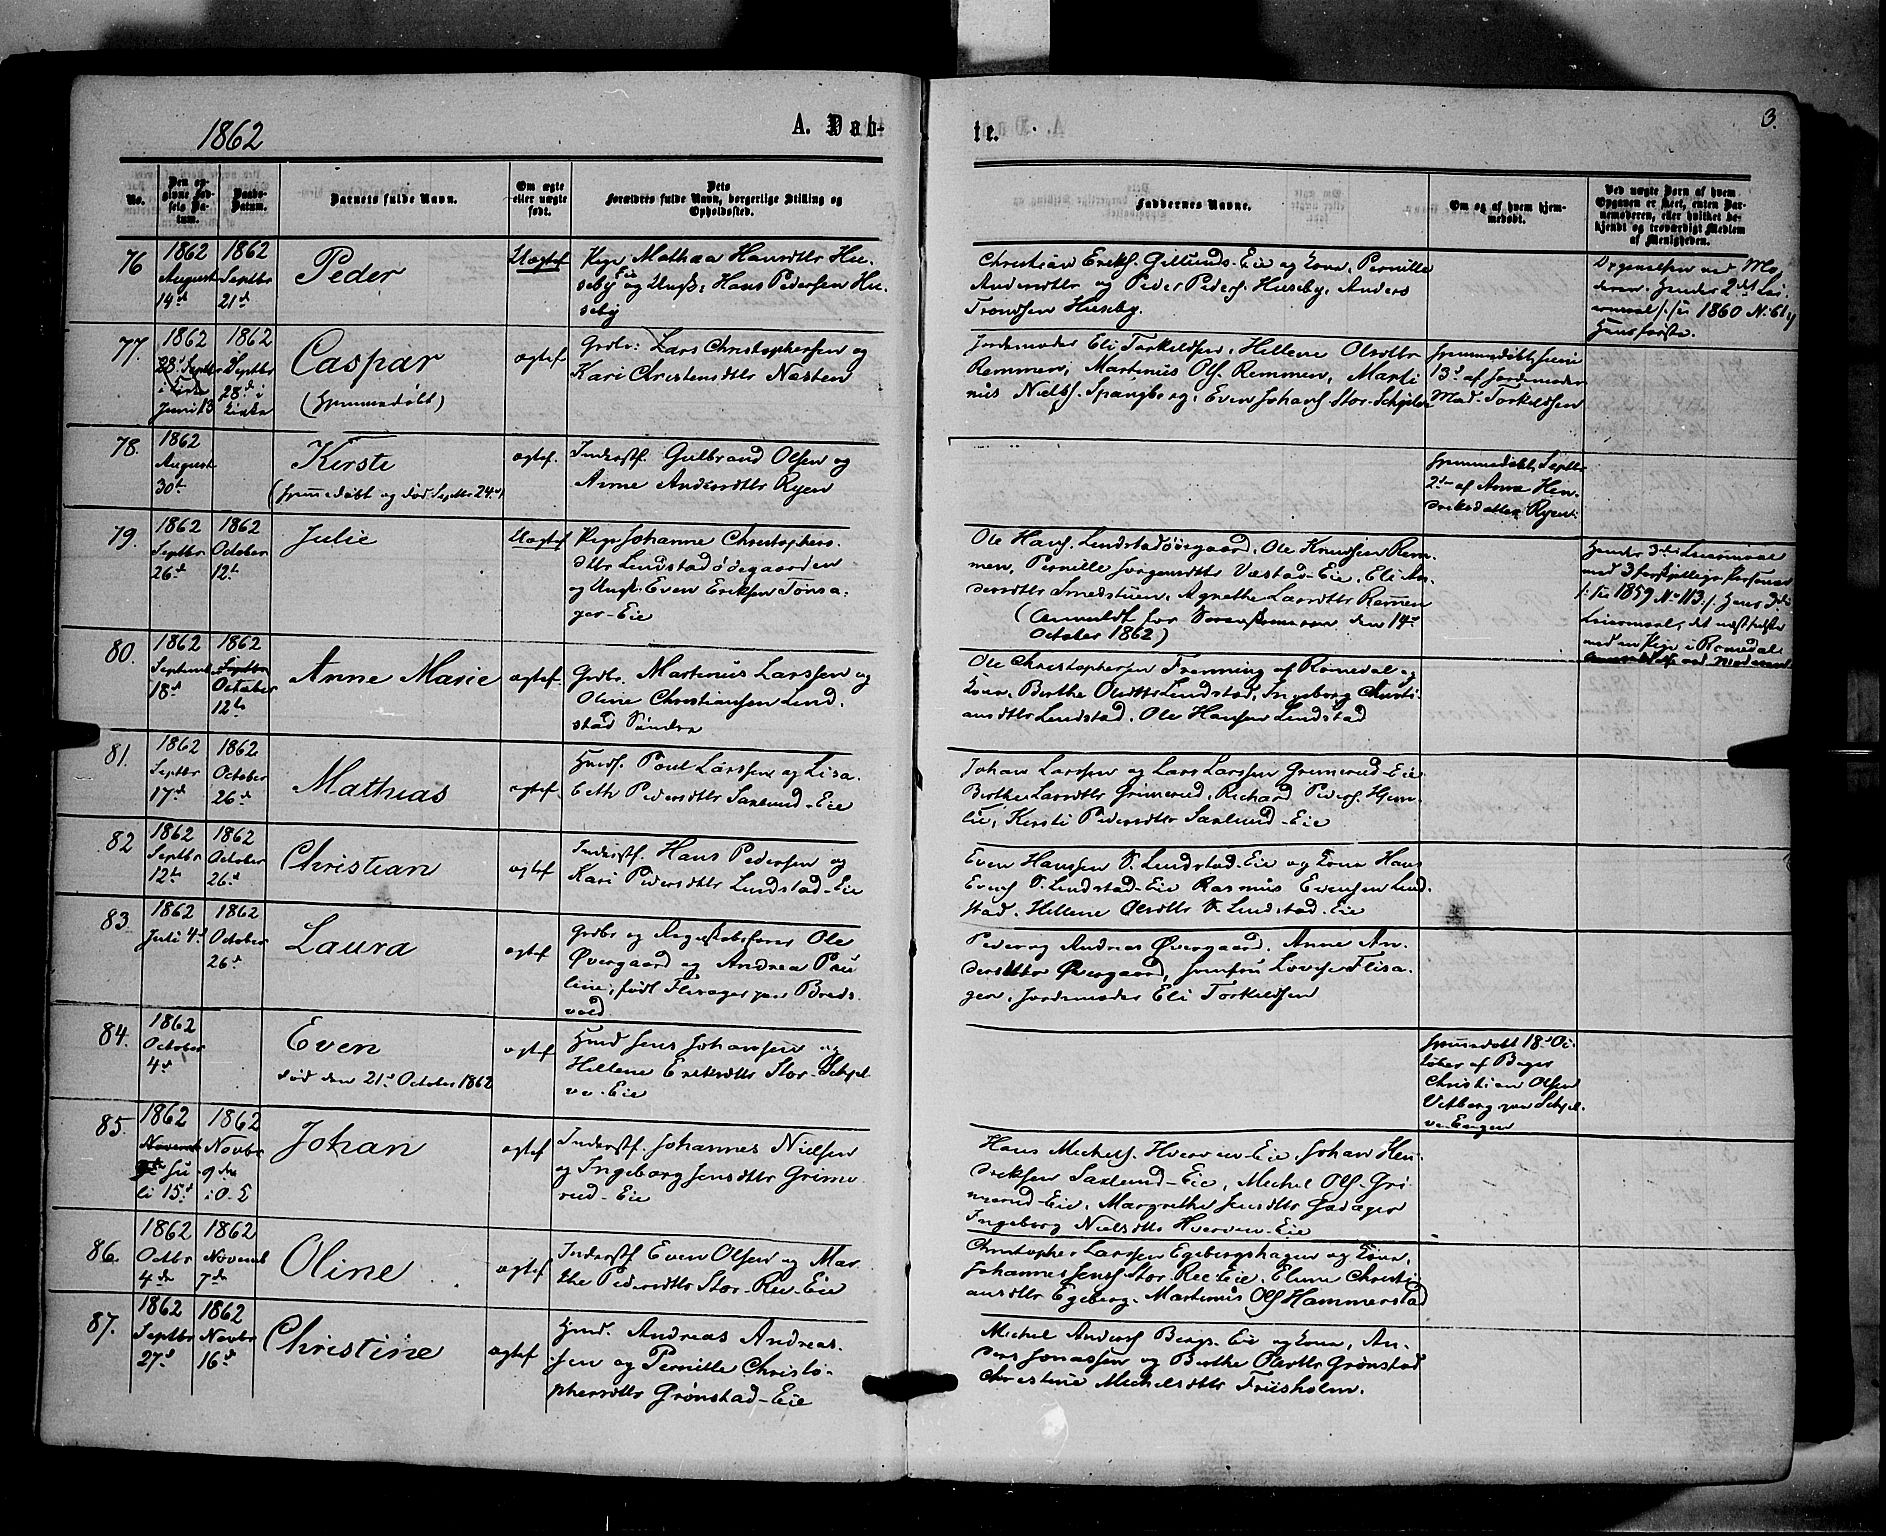 1862
A. Døb-
te.
3.
No.
Den opgivne Fødsels Datum.
Daabs-Datum.
Barnets fulde Navn.
Om ægte eller uægte født.
Dets Forældres fulde Navn, borgerlige Stilling og Opholdssted.
Faddernes Navne.
Om og af hvem hjemmedøbt.
Ved uægte Børn af hvem Opgaven er skeet, enten Barnemoderen, eller hvilket bekjendt og troværdigt Medlem af Menigheden.
76
1862 August 14d
1862 Septbr 21d
Peder
Uægtef
Pige Mathea Hansdtr Hu-
seby Eie og Ungk: Hans Pedersen Hu-
seby
Christian Eriks. Gillunds-Eie og Kone, Pernille
Andersdtr og Peder Peders. Huseby, Anders
Trondsen Huseby.
Opgivelsen ved Mo-
deren. Hendes 2det Lei-
ermaal 1860 N: 61
Hans første.
77.
1862 28d Septbr i Kirke Juni 13
1862 Septbr 28d i Kirke
Caspar
(hjemmedøbt)
ægtef
Grdbr: Lars Christophersen og
Kari Christensdtr Næsten
Jordemoder Eli Torkildsen, Hellene Olsdtr
Remmen, Martinus Ols. Remmen, Marti
nus Niels. Spangberg, Even Johans. Stor-Schjelve
Hjemmedøbt Juni
13d af Jordemoder
Mad. Torkildsen
78.
1862 August 30te
Kirsti
(hjemmedøbt og død Septbr 24d)
ægtef.
Inderstf. Gulbrand Olsen og
Anne Andersdtr Ryen
Hjemmedøbt Septbr
2den af Anne Hen-
driksdatter Ryen.
79.
1862 Septbr 26d
1862 October 12te
Julie
Uægtef
Pige Johanne Christophers-
dtr Lindstadødegaarden
og Ungk: Even Eriksen Tønsa-
ger-Eie
Ole Hans. Lindstadøiegaard, Ole Knudsen Rem-
men, Pernille Jørgensdtr Væstad-Eie, Eli An-
dersdtr Smedstuen, Agnethe Larsdtr Remmen
(Anmeldt for Sorenskriveren den 14d
October 1862)
Hendes 3die Leiermaal
med 3 forskjellige Personer
1859 No 113. Hans 2det
Leiermaal, det næst forste
med en Pige i Romedal
80.
1862 Septemb 18d
1862 Septbr October 12te
Anne Marie
ægtef
Grdbr. Martinus Larssen og
Oline Christiansen Lind-
stad Søndre
Ole Christophersen Frenning af Romedal og
Kone, Berthe Olsdtr Lindstad, Ingeborg Christi-
ansdtr Lindstad. Ole Hansen Lindstad
81.
1862 Septbr 17d
1862 October 26d
Mathias
ægtef
Hmdf. Poul Larssen og Lisa-
beth Pedersdtr Saxlund-Eie
Johan Larssen og Lars Larssen Grimerud-Eie
Berthe Larsdtr Grimerud, Richard Peders. Hjem-
lie, Kersti Pedersdtr Saxlund-Eie
82
1862 Septbr 12te
1862 October 26d
Christian
ægtef
Inderstf. Hans Pedersen og
Kari Pedersdtr Lindstad-Eie
Even Hanssen S. Lindstad-Eie og Kone Hans
Evens S. Lindstad-Eie Rasmus Evensen Lind-
stad. Hellene Olsdtr S. Lindstad-Eie
83
1862 Juli 4d
1862 October 26d
Laura
ægtef
Grdbr og Regnskabsfører Ole
Øvergaard og Andrea Pau
line, født Flisager paa Breds-
vold
Peder og Andreas Øvergaard. Anne An-
dersdtr Øvergaard, Jomfru Lovise Flisa-
ger, Jordemoder Eli Torkildsen
84.
1862 October 4d
Even
død den 21d October 1862
ægtef
Hmd Jens Johanssen og
Hellene Eriksdtr Stor-Schjel-
ve-Eie
Hjemmedøbt 18d Oc-
tober af Bager
Christian Olsen
Vitberg paa Schjel-
ve-Engen
85.
1862 Novemb Juli 15d
1862 Novbr 9de i O. K
Johan
ægtef
Inderstf. Johannes Nielsen
og Ingeborg Jensdtr Grime-
rud-Eie
Hans Michels. Hverven-Eie, Johan Hen-
driksen Saxlund-Eie, Michel Ols. Gri-
merud-Eie, Margrethe Jensdtr Opager
Ingeborg Nielsdtr Hverven-Eie
86.
1862 Octbr 4de
1862 Novemb 7de
Oline
ægtef
Inderstf. Even Olsen og Mar-
the Pedersdtr Stor-Ree-Eie
Christopher Larssen Egebergshagen og Kone,
Johannes Jens. Stor-Ree-Eie, Eline Christi
ansdtr Egeberg. Martinus Ols Hammerstad
87.
1862 Septbr 27d
1862 Novbr 16d
Christine
ægtef
Hmd. Andreas Andreas-
sen og Pernille Christo-
phersdtr Grønstad-Eie
Michel Anders Bergs-Eie og Kone, An-
ders Jonassen og Berthe Olsdtr Grønstad
Christine Michelsdtr Friisholm.